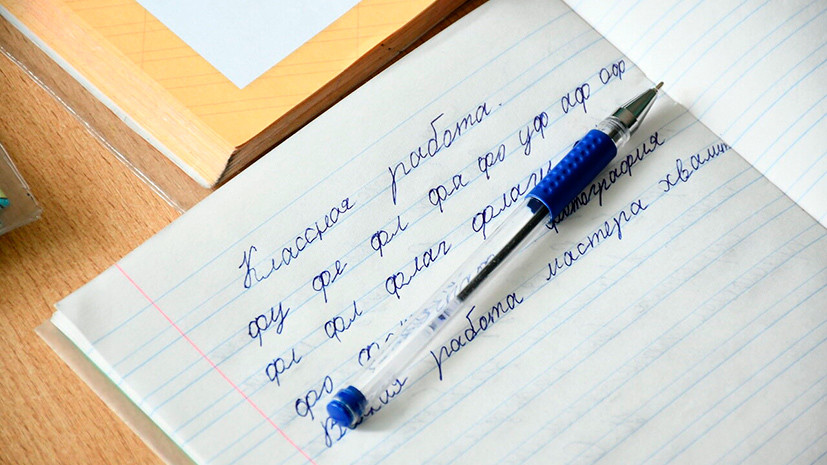 Классная работа.
фу фе фл фа фо уф аф оф
фл фл флаг флаги
фо фотография
работа мастера хвалит